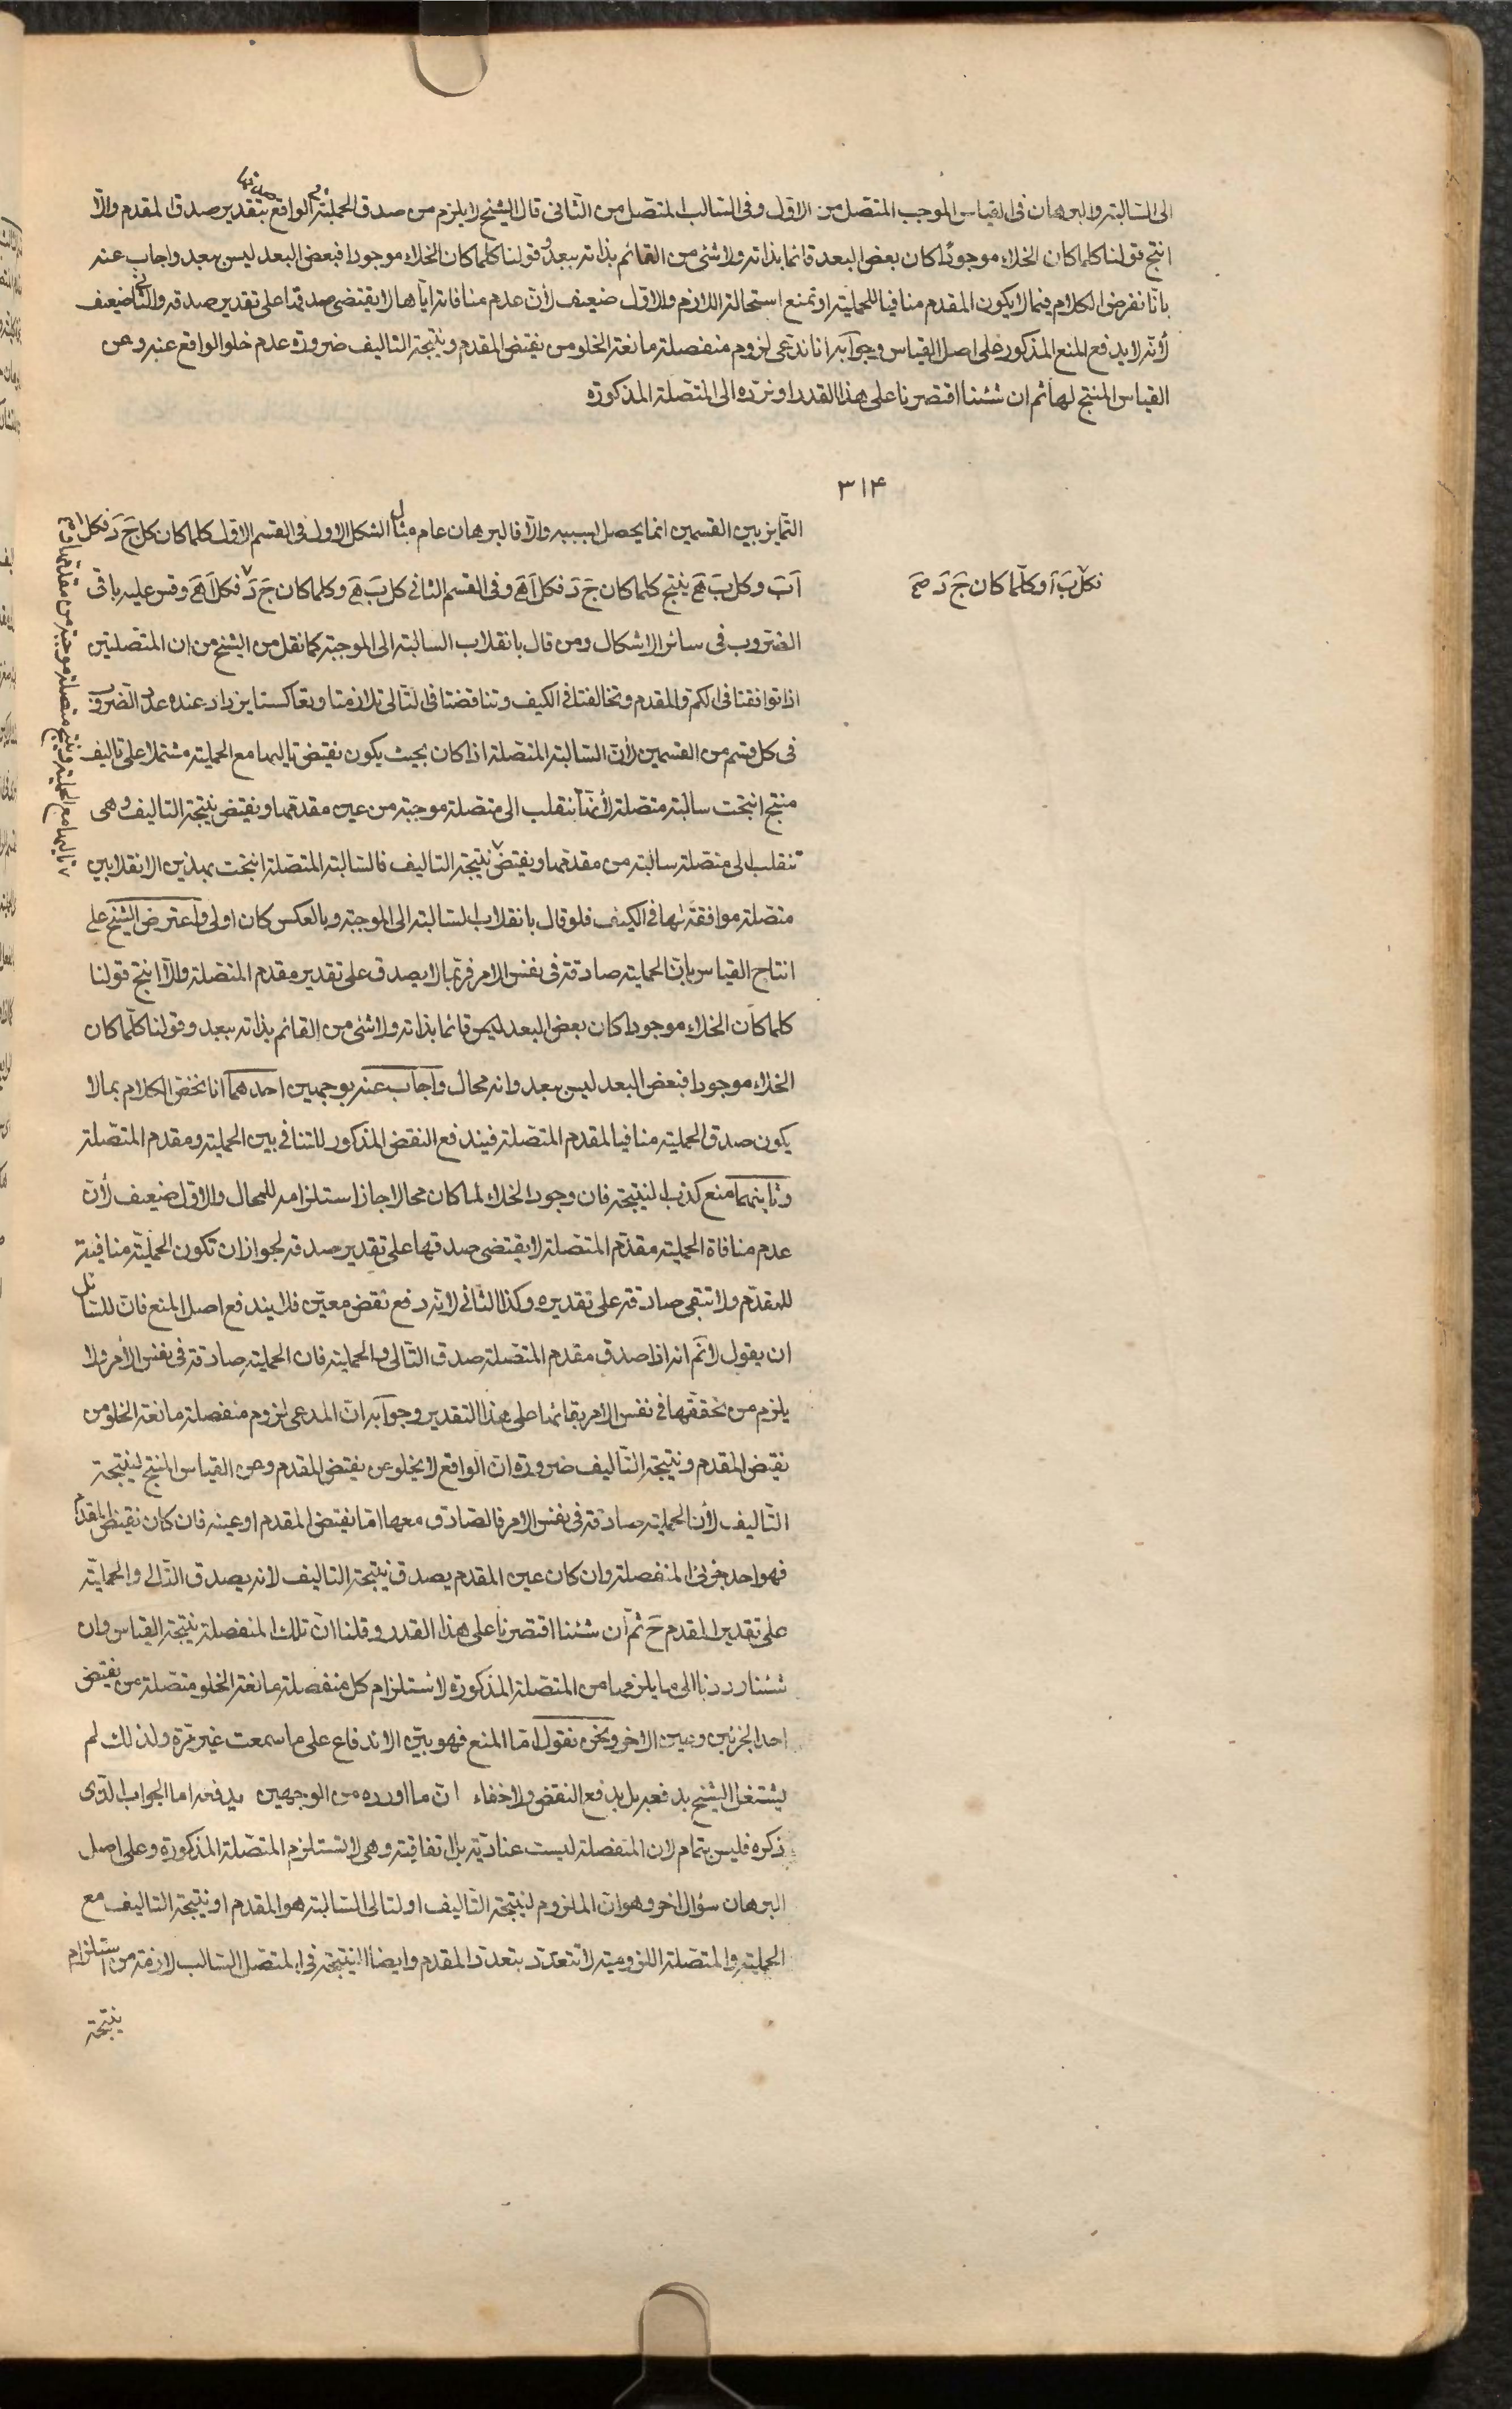 الى السالبة والبرهان فى القياس الموجب المتصل من الاول وفى السالب المتصل من الثانى قال الشيخ لا يلزم من صدق الحملية فى الواقع صدقها بتقدير صدق المقدم والّا
انتج قولنا كلما كان الخلاء موجودًا كان بعض البعد قائما بذاته ولا شئ من القائم بذاته ببعد وقولنا كلما كان الخلاء موجودا فبعض البعد ليس ببعد واجاب عنه
بانّا نفرض الكلام فيما لا يكون المقدم منافيا للحملية او نمنع استحالة اللازم والاول ضعيف لأن عدم منافاته ايّاها لا يقتضى صدقها على تقدير صدقه والثانى ضعيف
لأنه لا يدفع المنع المذكور على اصل القياس وجوابه انا ندعى لزوم منفصلة مانعة الخلو من نقيض المقدم ونتيجة التاليف ضرورة عدم خلو الواقع عنه وعن
القياس المنتج لها ثم ان شئنا اقتصرنا على هذا القدر او نرده الى المتصلة المذكورة
٣١۴
التمايز بين القسمين انما يحصل بسببه والّا فالبرهان عام مثال الشكل الاول فى القسم الاول كلما كان كل ج د فكل
اَبَ وكل بَ هَ ينتج كلما كان جَ دَ فكل اَ هَ وفى القسم الثانى كل بَ هَ وكلما كان جَ دَ فكل اَ هَ وقس عليه باقى
فكل بَ اَ وكلّما كان جَ دَ صح
الضروب فى سائر الاشكال ومن قال بانقلاب السالبة الى الموجبة كما نقل من الشيخ من ان المتصلتين
اذا توافقتا فى الكم والمقدم وتخالفتا فى الكيف وتناقضتا فى التالى تلازمتا وتعاكستا يزداد عنده عدد الضروب
فى كل قسم من القسمين لأن السالبة المتصلة اذا كان بحيث يكون نقيض تاليها مع الحملية مشتملا على تاليف
منتج انتجت سالبة متصلة لأنها تنقلب الى متصلة موجبة من عين مقدمها ونقيض نتيجة التاليف وهى
تنقلب الى متصلة سالبة من مقدمها ونقيض نتيجة التاليف فالسالبة المتصلة انتجت بهذين الانقلابين
من مقدمها متصلة موجبة وينتج مع الحملية تاليها
متصلة موافقة لها فى الكيف فلو قال بانقلاب السالبة الى الموجبة وبالعكس كان اولى واعترض الشيخ على
انتاج القياس بان الحملية صادقة فى نفس الامر فربّما لا يصدق على تقدير مقدم المتصلة والّا انتج قولنا
كلما كان الخلاء موجودا كان بعض البعد ليس قائما بذاته ولا شئ من القائم بذاته ببعد وقولنا كلّما كان
الخلاء موجودا فبعض البعد ليس ببعد وانه محال واجاب عنه بوجهين احدهما انا نخصّ الكلام بما لا
يكون صدق الحملية منافيا لمقدم المتصلة فيندفع النقض المذكور للتنافى بين الحملية ومقدم المتصلة
وثانيهما منع كذب النتيجة فان وجود الخلاء لما كان محالا جاز استلزامه للمحال والاول ضعيف لأن
عدم منافاة الحملية مقدّم المتصلة لا يقتضى صدقها على تقدير صدقه لجواز ان تكون الحمليّة منافية
للمقدّم ولا تبقى صادقة على تقديره وكذا الثانى لانه دفع نقض معيّن فلا يندفع اصل المنع فان للسائل
ان يقول لا نمّ انه اذا صدق مقدم المتصلة صدق التالى والحملية فان الحملية صادقة فى نفس الأمر ولا
يلزم من تحققها فى نفس الامر بقائها على هذا التقدير وجوابه ان المدعى لزوم منفصلة مانعة الخلو من
نقيض المقدم ونتيجة التاليف ضرورة ان الواقع لا يخلو عن نقيض المقدم وعن القياس المنتج لنتيجة
التاليف لأن الحملية صادقة فى نفس الامر فالصادق معها امّا نقيض المقدم او عينه فان كان نقيض المقدم
فهو احد جزئى المنفصلة وان كان عين المقدم يصدق نتيجة التاليف لانه يصدق التالى والحملية
على تقدير المقدم حَ ثمّ ان شئنا اقتصرنا على هذا القدر وقلنا ان تلك المنفصلة نتيجة القياس وان
شئنا رددنا الى ما يلزمها من المتصلة المذكورة لاستلزام كل منفصلة مانعة الخلو متصلة من نقيض
احد الجزئين وعين الاخر ونحن نقول امّا المنع فهو بيّن الاندفاع على ما سمعت غير مرّة ولذلك لم
يشتغل الشيخ بدفعه بل بدفع النقض ولا خفاء ان ما اورده من الوجهين يدفعه اما الجواب الذى
ذكره فليس بتمام لان المنفصلة ليست عناديّة بل اتفاقية وهى لا تستلزم المتصلة المذكورة وعلى اصل
البرهان سؤال اخر وهو ان الملزوم لنتيجة التاليف او لتالى السالبة هو المقدم او نتيجة التاليف مع
الحملية والمتصلة اللزومية لا تتعدّد بتعدّد المقدم وايضا النتيجة فى المتصل السالب لازمة من استلزام
نتيجة